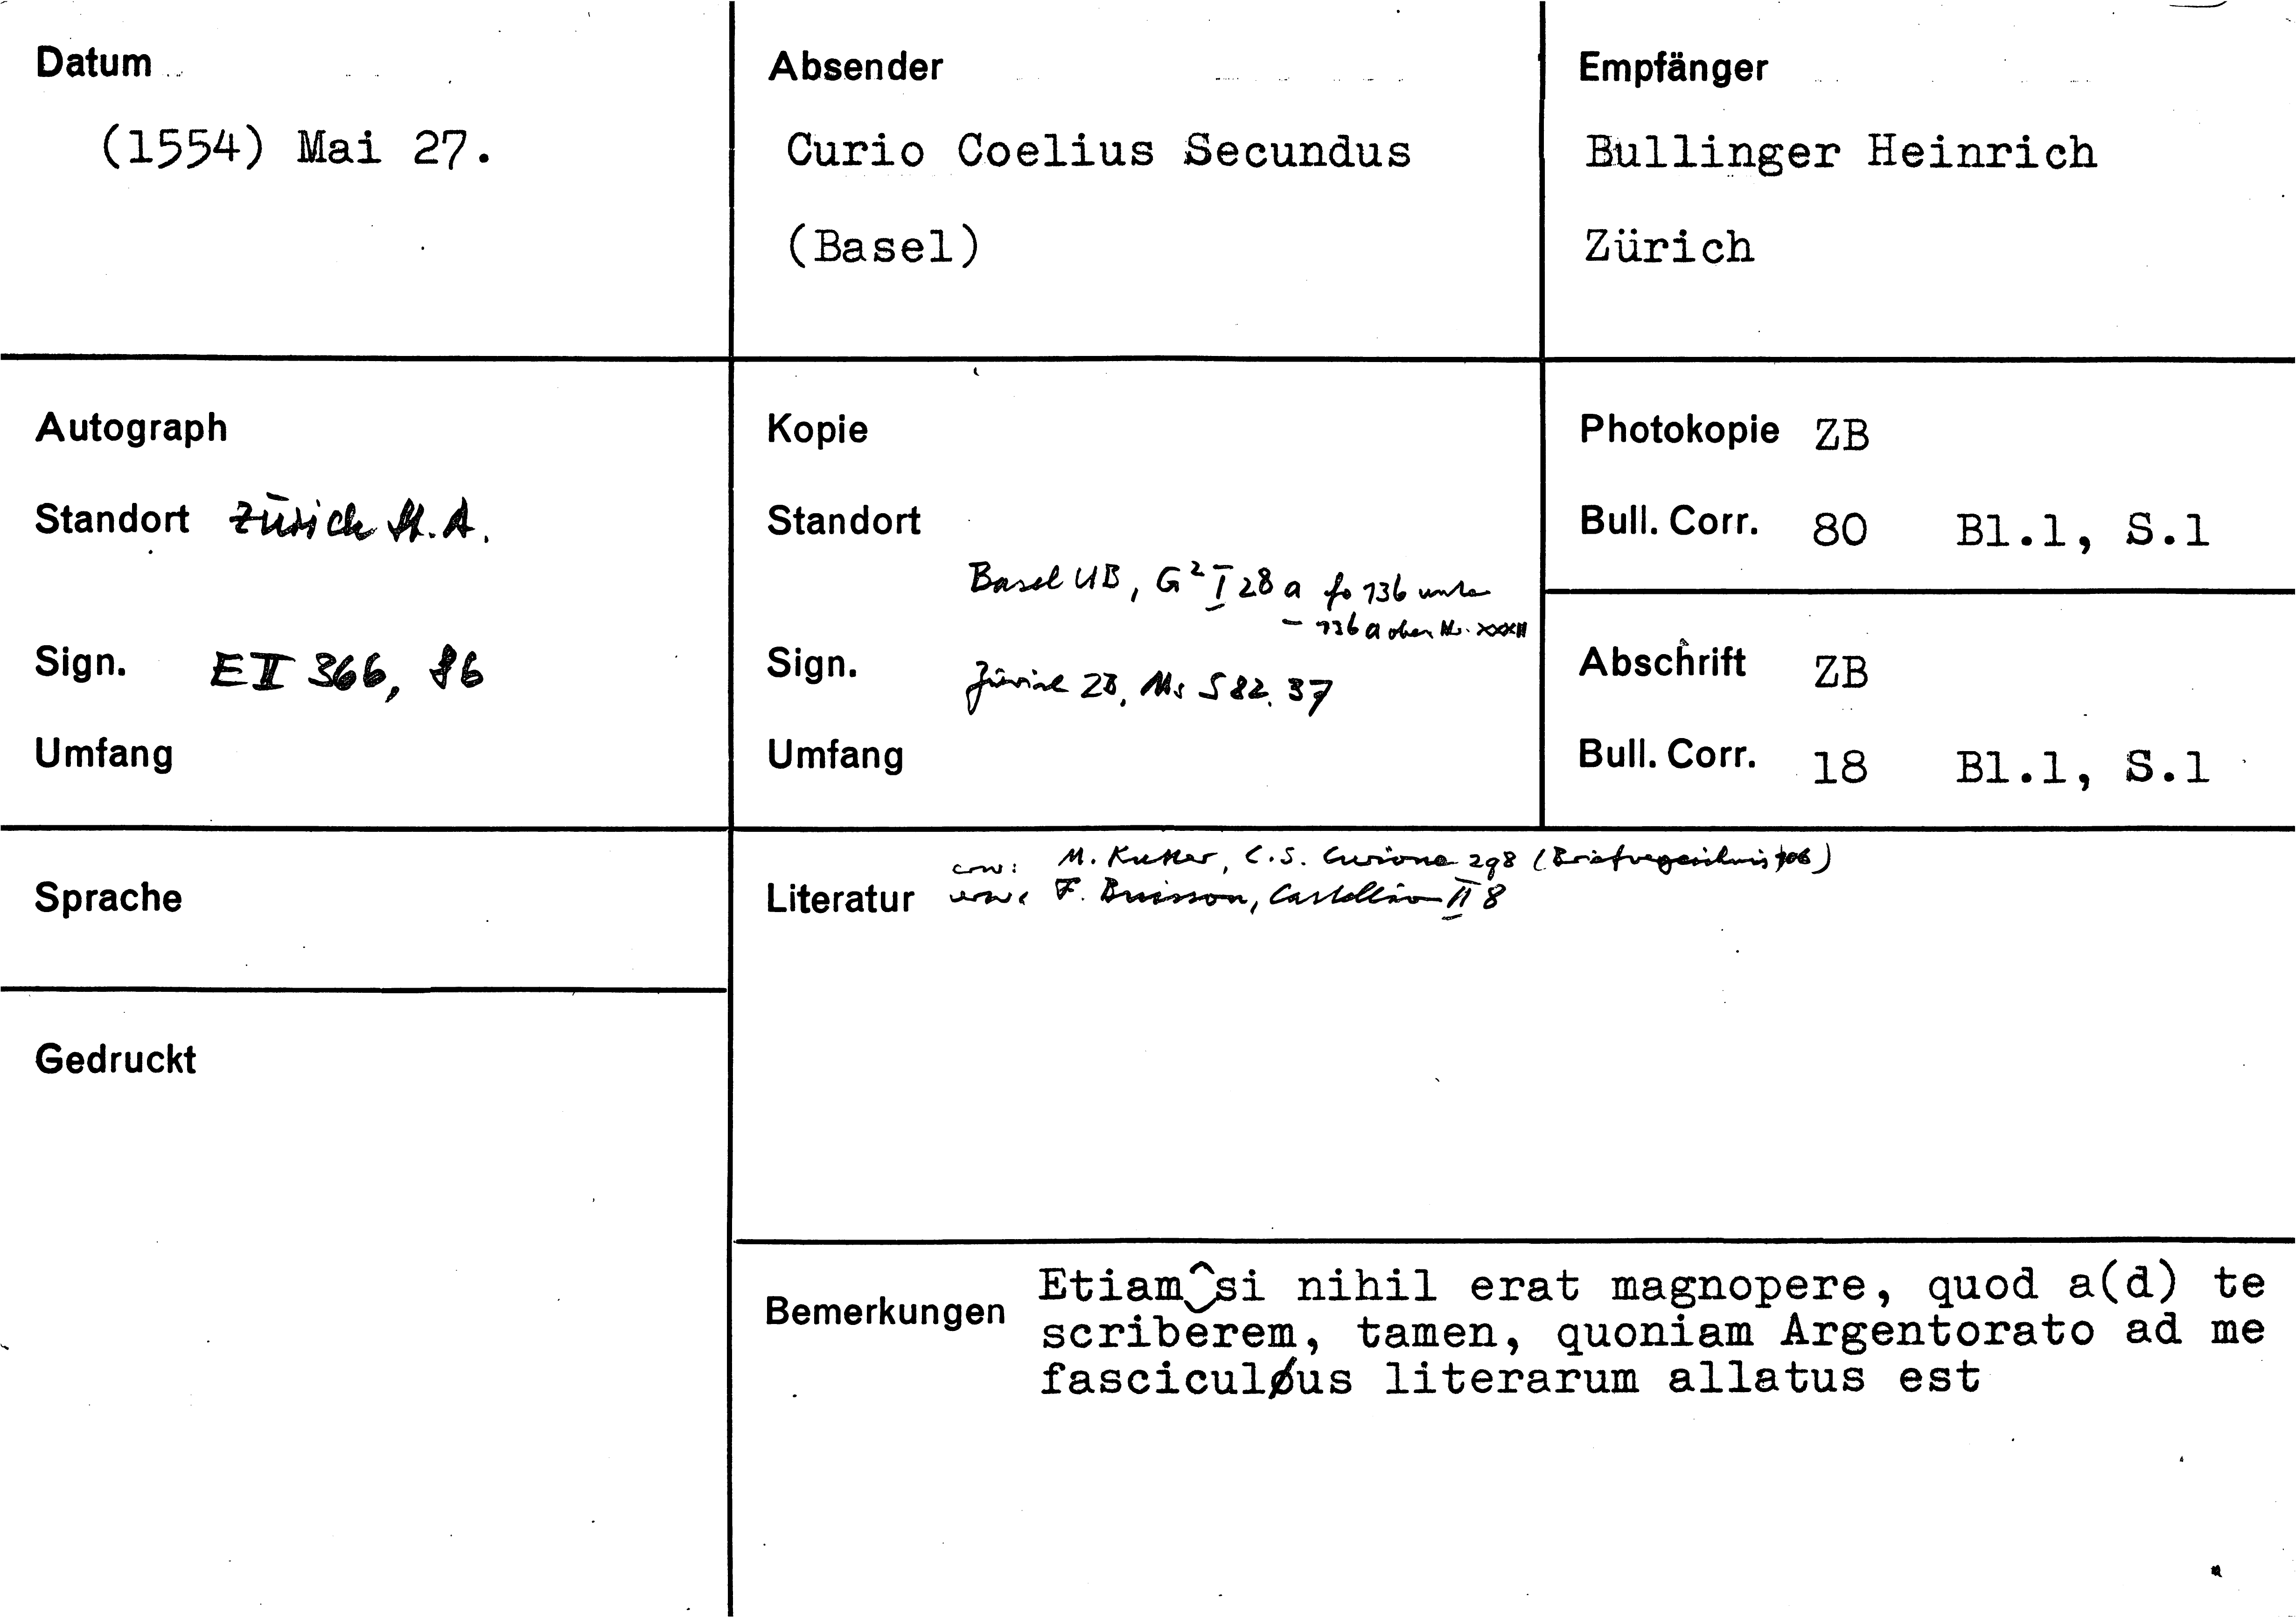 Datum
(1554) Mai 27.
Absender
Curio Coelius Secundus
(Basel)
Empfänger
Bullinger Heinrich
Zürich
Autograph
Standort Zürich St.A.
Sign. E II 366, 86
Umfang
Kopie
Standort
Basel UB, G² I 28 a fo 136 unten
- 136 a oben Nr. XXXII
Sign. Zürich ZB, Ms S 82, 37
Umfang
Photokopie ZB
Bull. Corr. 80 Bl.1, S.1
Abschrift ZB
Bull. Corr. 18 Bl.1, S.1
Sprache
Gedruckt
Literatur
erw: M. Kutter, C.S. Curione 298 (Briefverzeichnis 106)
erw: F. Buisson, Castellion II 8
Bemerkungen
Etiam si nihil erat magnopere, quod a(d) te
scriberem, tamen, quoniam Argentorato ad me
fasciculus literarum allatus est